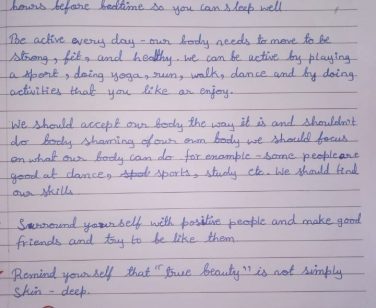 hours before bedtime so you can sleep well
Be active every day - our body needs to move to be
strong, fit, and healthy. we can be active by playing
a sport, doing yoga, run, walk, dance and by doing
activities that you like or enjoy.
We should accept our body the way it is and shouldn't
do body shaming of our own body we should focus
on what our body can do for example - some people are
good at dance, spot sports, study etc. We should find
our skills
Surround yourself with positive people and make good
friends and try to be like them
Remind yourself that "true beauty" is not simply
skin - deep.